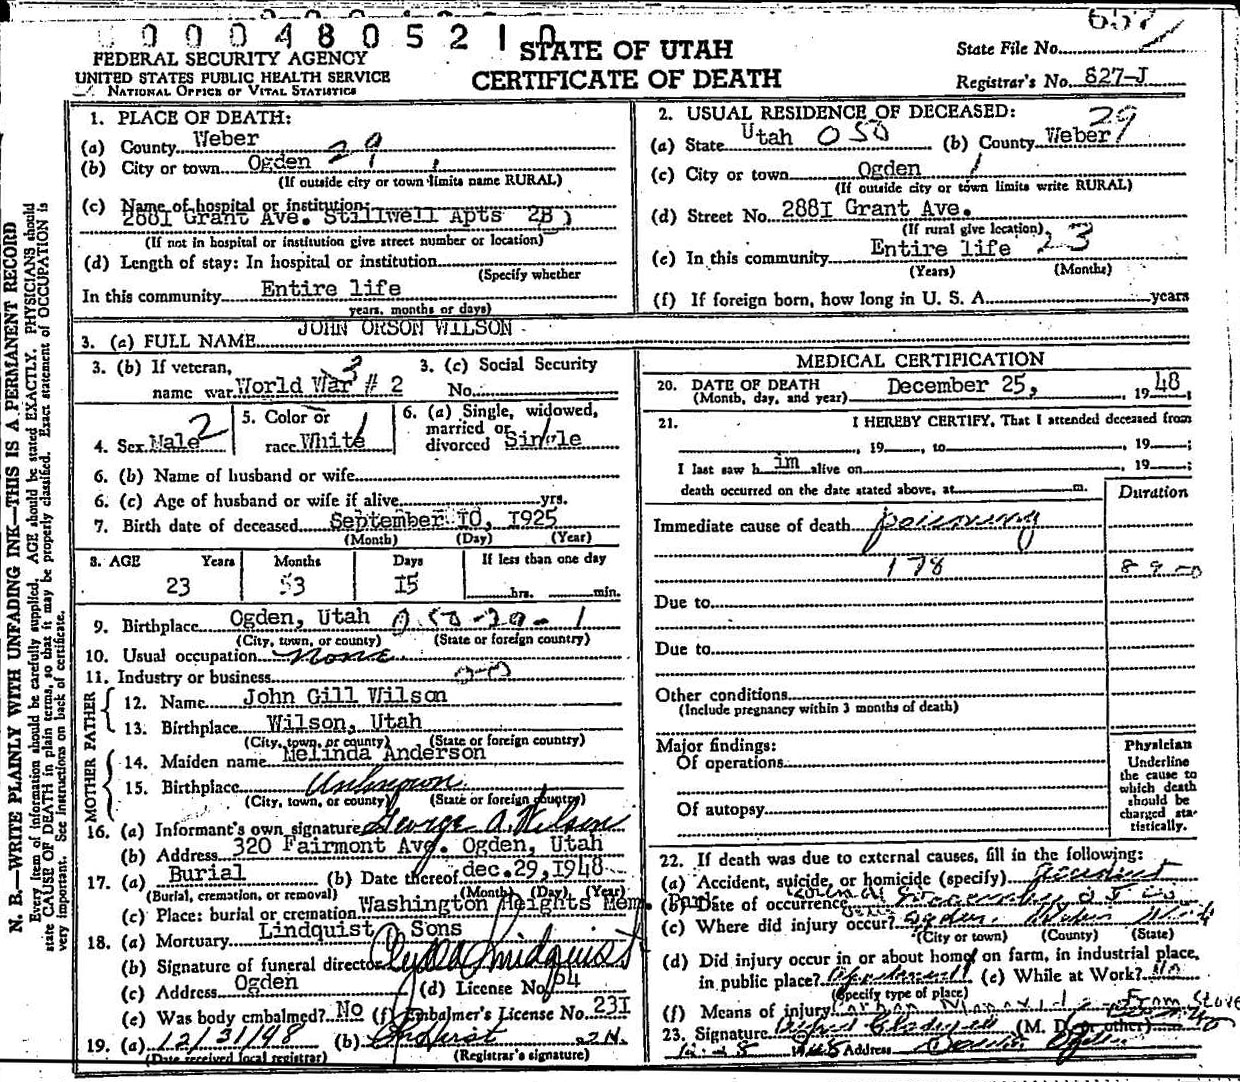 0 0 0 4 8 0 5 2 1 0
FEDERAL SECURITY AGENCY
UNITED STATES PUBLIC HEALTH SERVICE
NATIONAL OFFICE OF VITAL STATISTICS
STATE OF UTAH
CERTIFICATE OF DEATH
State File No. 657
Registrar's No. 827-J
N. B.—WRITE PLAINLY WITH UNFADING INK—THIS IS A PERMANENT RECORD
Every item of information should be carefully supplied. AGE should be stated EXACTLY. PHYSICIANS should
state CAUSE OF DEATH in plain terms, so that it may be properly classified. Exact statement of OCCUPATION is
very important. See instructions on back of certificate.
1. PLACE OF DEATH:
(a) County Weber
(b) City or town Ogden 29
(If outside city or town limits name RURAL)
(c) Name of hospital or institution:
2881 Grant Ave. Stillwell Apts 2B)
(If not in hospital or institution give street number or location)
(d) Length of stay: In hospital or institution
(Specify whether
In this community Entire life
years, months or days)
2. USUAL RESIDENCE OF DECEASED:
(a) State Utah 050 (b) County Weber 29
(c) City or town Ogden 1
(If outside city or town limits write RURAL)
(d) Street No. 2881 Grant Ave.
(If rural give location)
(e) In this community Entire life 23
(Years) (Months)
(f) If foreign born, how long in U. S. A. years
3. (a) FULL NAME JOHN ORSON WILSON
3. (b) If veteran, 3
name war World War # 2
3. (c) Social Security
No.
4. Sex Male 2
5. Color or
race White 1
6. (a) Single, widowed,
married or
divorced Single
6. (b) Name of husband or wife
6. (c) Age of husband or wife if alive yrs.
7. Birth date of deceased September 10, 1925
(Month) (Day) (Year)
8. AGE Years Months Days If less than one day
23 3 15 hrs. min.
9. Birthplace Ogden, Utah
(City, town, or county) (State or foreign country)
10. Usual occupation None
11. Industry or business
FATHER
12. Name John Gill Wilson
13. Birthplace Wilson, Utah
(City, town, or county) (State or foreign country)
MOTHER
14. Maiden name Melinda Anderson
15. Birthplace Unknown
(City, town, or county) (State or foreign country)
16. (a) Informant's own signature George A. Wilson
(b) Address 320 Fairmont Ave. Ogden, Utah
17. (a) Burial (b) Date thereof dec. 29, 1948
(Burial, cremation, or removal) (Month) (Day) (Year)
(c) Place: burial or cremation Washington Heights Mem. Park
18. (a) Mortuary Lindquist Sons
(b) Signature of funeral director Clyde Lindquist
(c) Address Ogden (d) License No. 54
(e) Was body embalmed? No (f) Embalmer's License No. 231
19. (a) 12/31/48 (b)
(Date received local registrar) (Registrar's signature)
MEDICAL CERTIFICATION
20. DATE OF DEATH December 25, 1948
(Month, day, and year)
21. I HEREBY CERTIFY, That I attended deceased from
, 19 , to , 19 ;
I last saw him alive on , 19 ;
death occurred on the date stated above, at m.
Duration
Immediate cause of death poisoning
178
Due to
Due to
Other conditions
(Include pregnancy within 3 months of death)
Major findings:
Of operations
Of autopsy
Physician
Underline
the cause to
which death
should be
charged sta-
tistically.
22. If death was due to external causes, fill in the following:
(a) Accident, suicide, or homicide (specify) Accident
(b) Date of occurrence December 25
(c) Where did injury occur? Ogden Weber Utah
(City or town) (County) (State)
(d) Did injury occur in or about home, on farm, in industrial place,
in public place? Apartment (e) While at Work? No
(Specify type of place)
(f) Means of injury Carbon Monoxide From Stove
23. Signature (M. D. or other)
Address Ogden